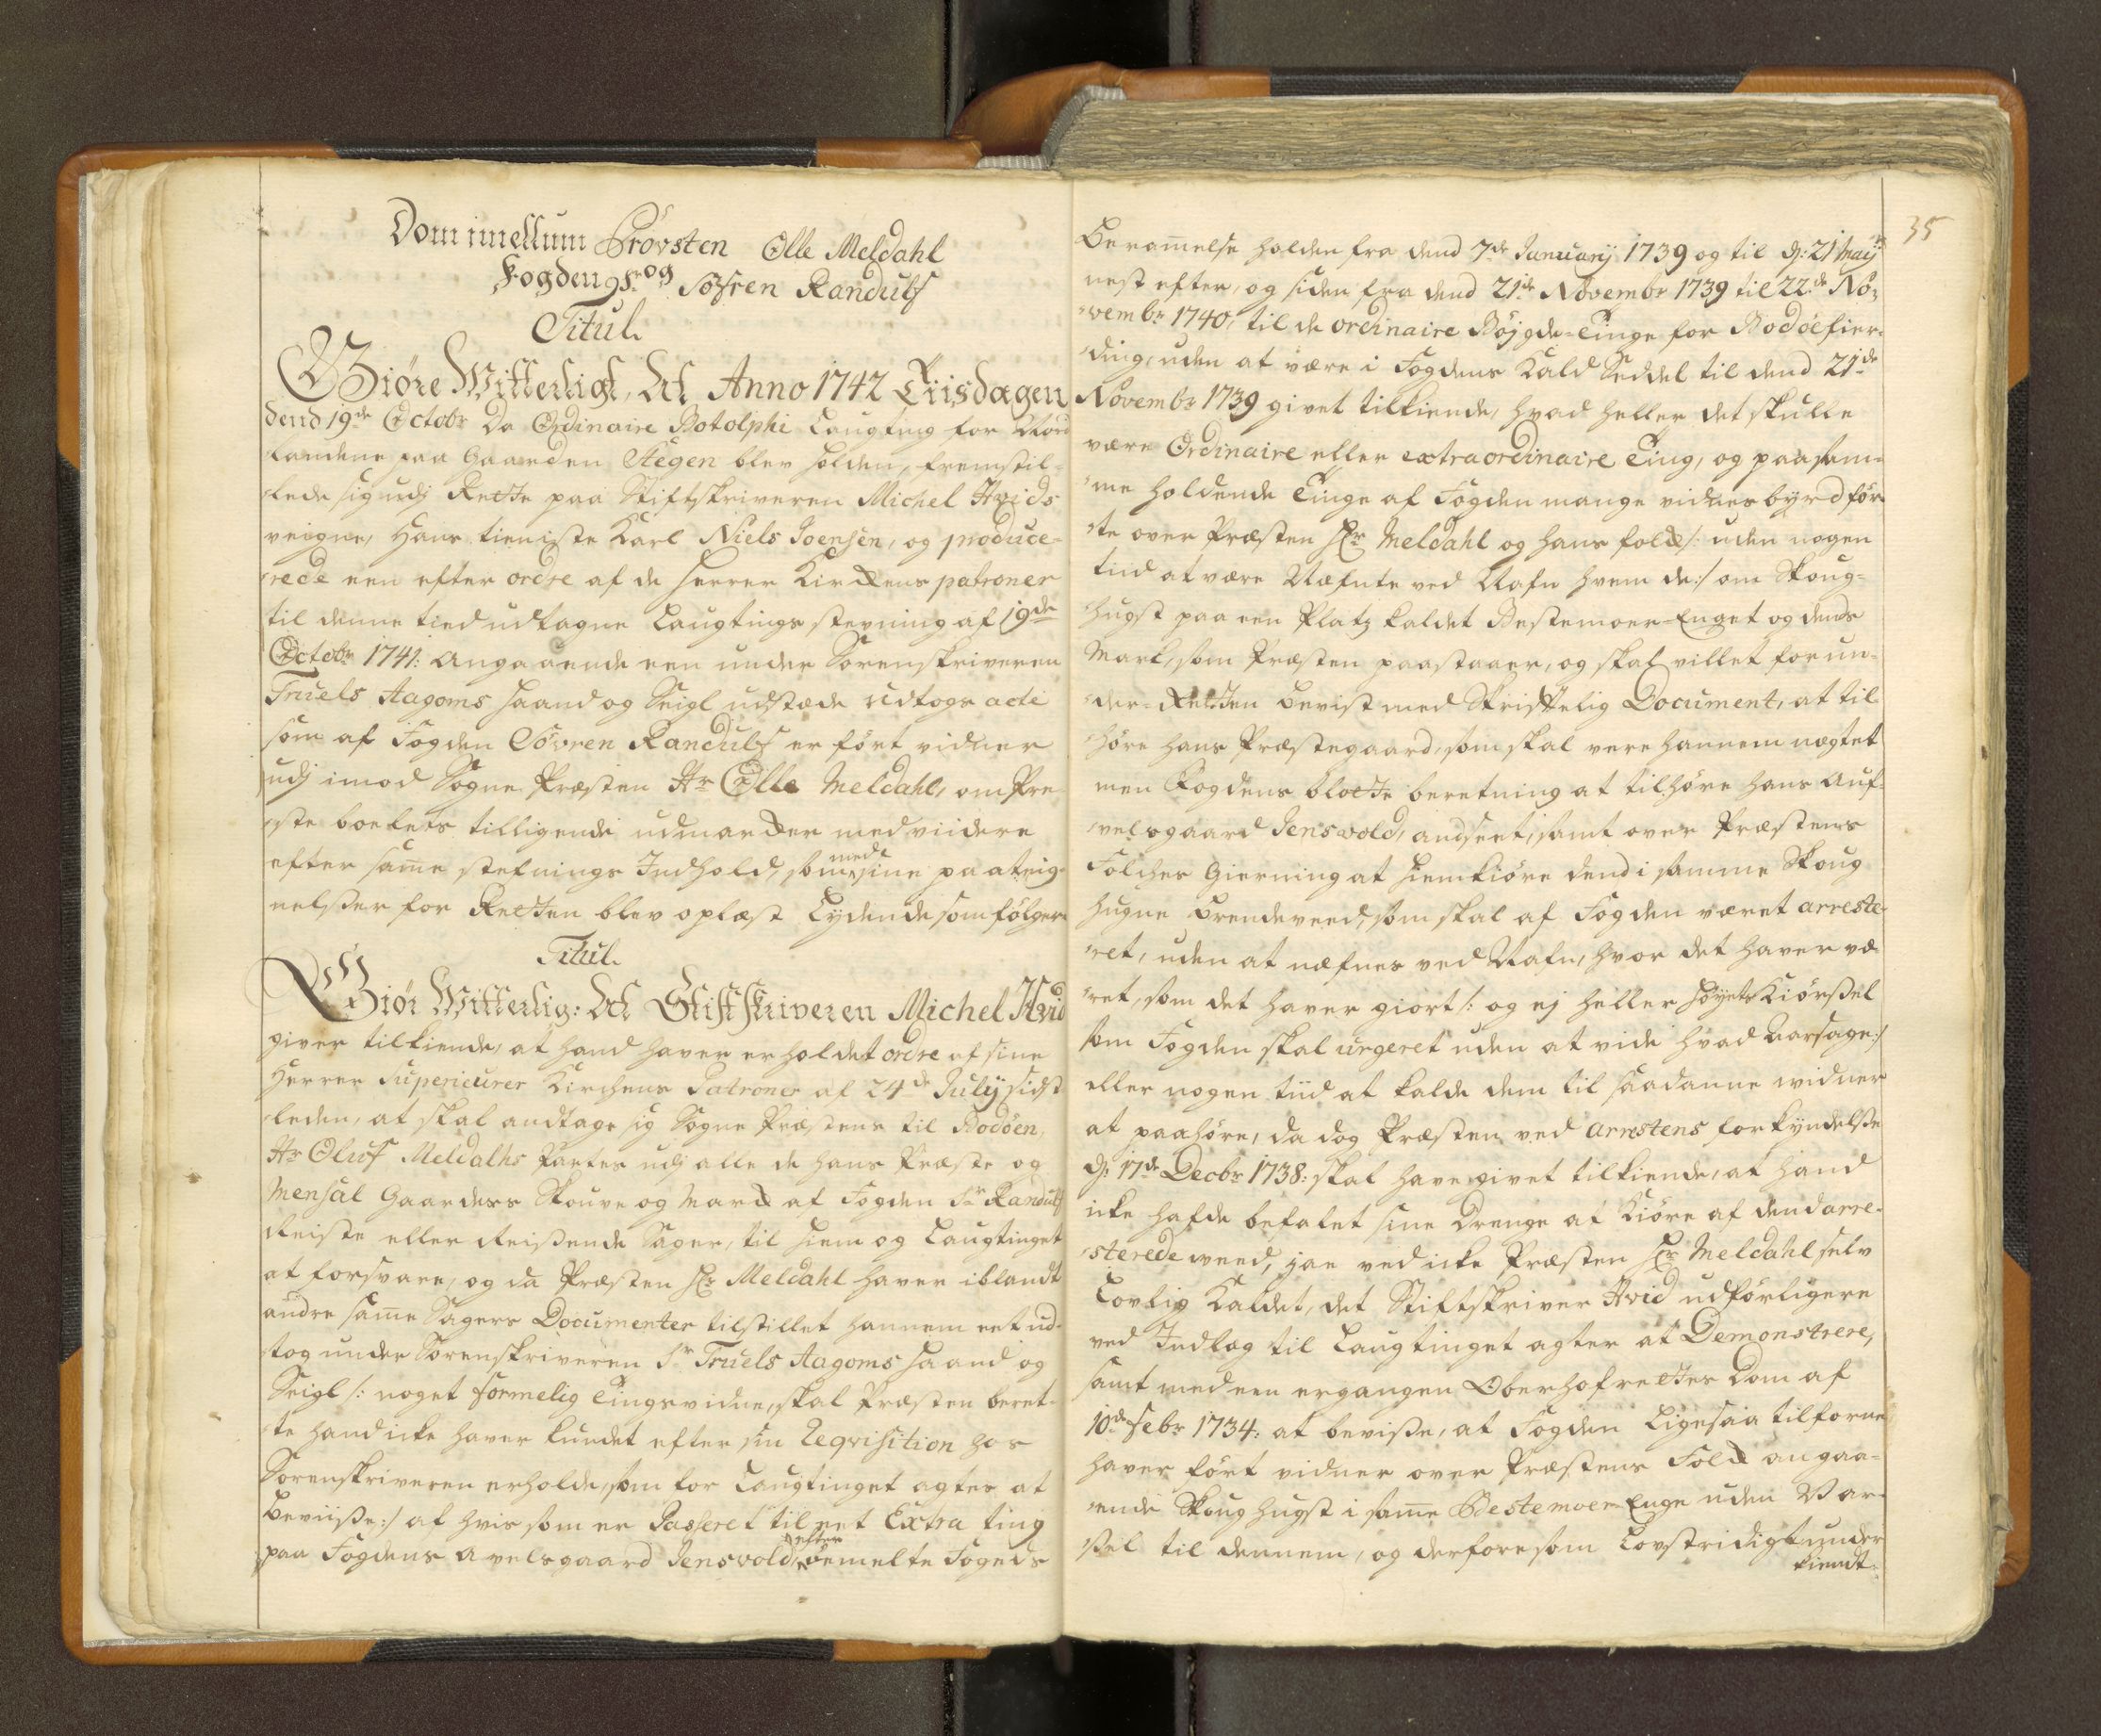 Dom imellum Provsten Olle Meldahl
og
Fogden Sr Søfren Randulf
Titul.
Giøre Witterligt, At Anno 1742 Tiisdagen
dend 19de Octobr Da Ordinaire Botolphi Laugting for Nord
landene paa Gaarden Stegen blev holden, fremstil-
lede sig udj Rette paa Stiftskriveren Michel Hvids
veigne, Hans tieniste Karl Niels Joensen, og produce-
rede een efter ordre af de Herrer Kirckens patroner
til denne tied udtagne Laugtings stevning af 19de
Octobr 1741: angaaende een under Sorenskriveren
Truels Aagoms Haand og Seigl udstæde Udtogs acte
som af Fogden Søvren Randulf er ført vidner
udj imod Sogne Præsten Hr Olle Meldahl, om Præ-
ste boelets tilligende udmarcker med viidere
efter same stefnings Indhold, som med sine paateig-
nelsser for Retten blev oplæst Lydende som følger
Titul.
Giør Witterlig: At Stiftskriveren Michel Hvid
giver tilkiende, at hand haver erholdet ordre af sine
Herrer Superieurer Kirchens Patroner af 24de July sidst-
leden, at skal andtage sig Sogne Præstens til Bodøen,
Hr Oluf Meldalhs Partes udj alle de hans Præste og
Mensal Gaarders Skouve og Marck af Fogden Sr Randulf
Reiste eller Reissende Sager, til Hiem og Laugtinget
at forsvare, og da Præsten Hr Meldahl haver iblandt
andre same Sagers Documenter tilstillet hannem eet ud-
tog under Sorenskriveren Sr Truels Aagoms Haand og
Seigl /: noget formelig Tingsvidne, skal Præsten beret-
te hand icke haver kundet efter sin Reqvisition hos
Sorenskriveren erholde, som for Laugtinget agtes at
Beviisse :/ af hvis som er Passeret til eet Extra ting
paa Fogdens Avelsgaard Jensvold, efter bemelte Fogeds
35
Beramelse holden fra dend 7de January 1739 og til d: 21 Maij
nest efter, og siden fra dend 21de Novembr 1739 til 22de No-
vembr 1740, til de ordinaire Bøjgde-Tinge for Bodøefier-
ding, uden at være i Fogdens Kald Seddel til dend 21de
Novembr 1739 givet tilkiende, hvad heller det skulle
være Ordinaire eller extraordinaire Ting, og paa sam-
me holdende Tinge af Fogden mange vidnesbyrd før-
te over Præsten Hr Meldahl og hans folck /: uden nogen
tiid at være Nefnte ved Nafn hvem de :/ om Skoug-
hugst paa een Platz kaldet Bestemoer-Enget og dends
Mark, som Præsten paastaaer, og skal villet for un-
der-Retten bevist med Skriftelig Document, at til-
høre hans Præstegaard, som skal vere hannem nægtet
men Fogdens blotte beretning at tilhøre hans Auf-
velsgaard Jensvold, andseet, samt over Præstens
Folckes Gierning at hiemkiøre dend i samme Skoug
hugne Brendeveed, som skal af Fogden været arreste-
ret, uden at nefnes ved Nafn, hvor det haver væ-
ret, som det haver giort /: og ej heller Høyets Kiørssel
som Fogden skal urgeret uden at vide hvad aarsage :/
eller nogen tiid at kalde dem til saadanne vidner
at paahøre, da dog Præsten ved arrestens forkyndelsse
d: 17de Decbr 1738: skal have givet tilkiende, at hand
icke hafde befalet sine Drenge at Kiøre af dend arre-
sterede veed, jae ved icke Præsten Hr Meldahl selv
Lovlig Kaldet, det Stiftskriver Hvid udførligere
ved Indlæg til Laugtinget agter at Demonstrere,
samt med een ergangen Oberhofrettes Dom af
10de Febr 1734: at bevisse, at Fogden Ligesaa tilforne
haver ført vidner over Præstens Folck angaa-
ende Skoughugst i same Bestemoer-Enge uden Var-
ssel til dennem, og derfore som Lovstridigt under
kiendt